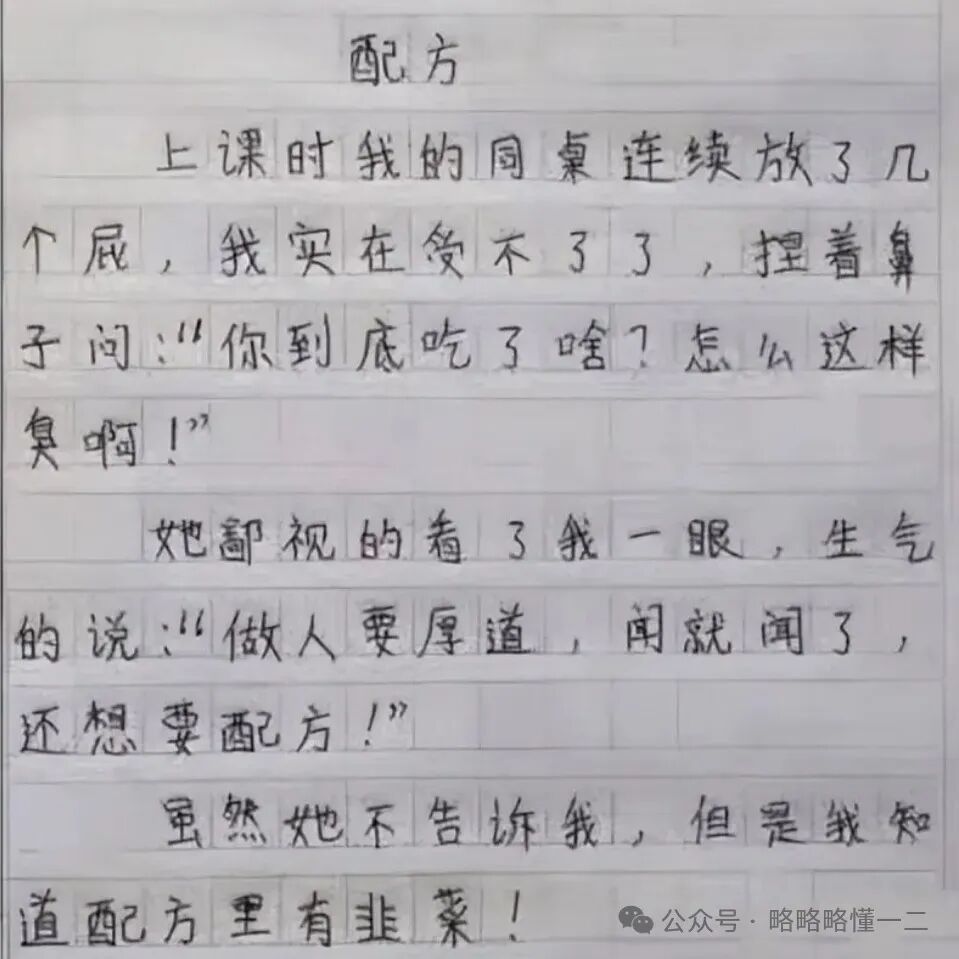 配方
上课时我的同桌连续放了几
个屁，我实在受不了了，捏着鼻
子问：“你到底吃了啥？怎么这样
臭啊！”
她鄙视的看了我一眼，生气
的说：“做人要厚道，闻就闻了，
还想要配方！”
虽然她不告诉我，但是我知
道配方里有韭菜！
公众号·略略略懂一二